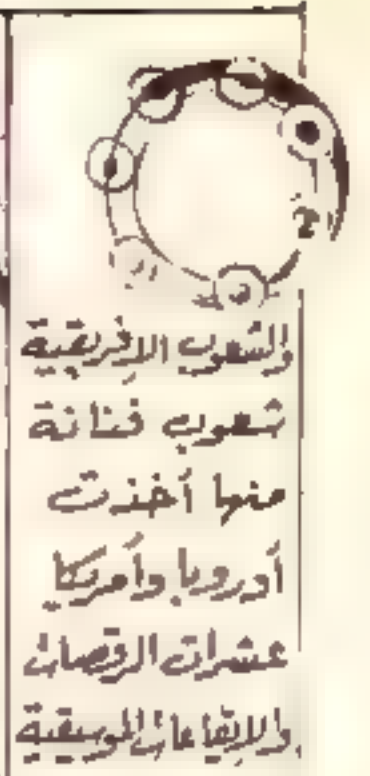 والشعوب الإفريقية
شعوب فنانة
منها أخذت
أوروبا وأمريكا
عشرات الرقصات
والإيقاعات الموسيقية